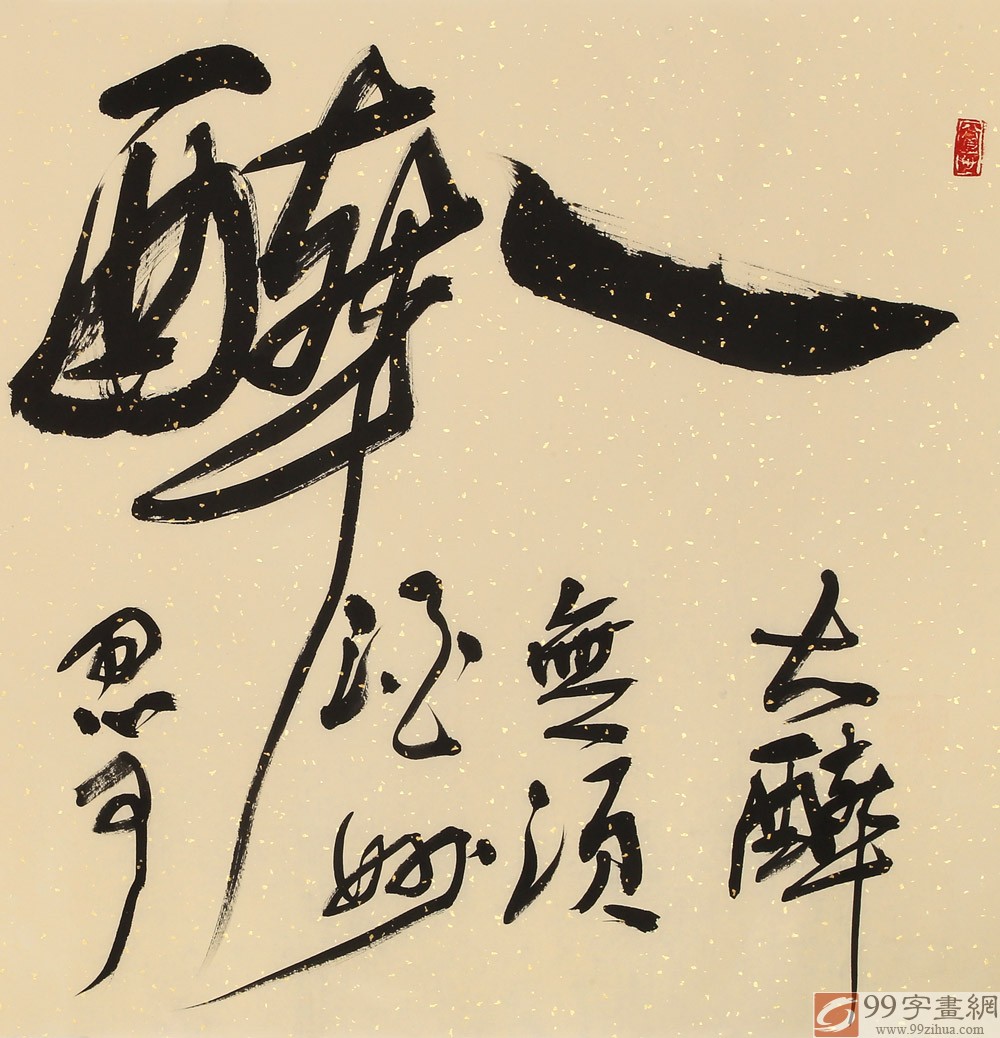 一醉
大醉
無須
妙
思
99字畫網
www.99zihua.com